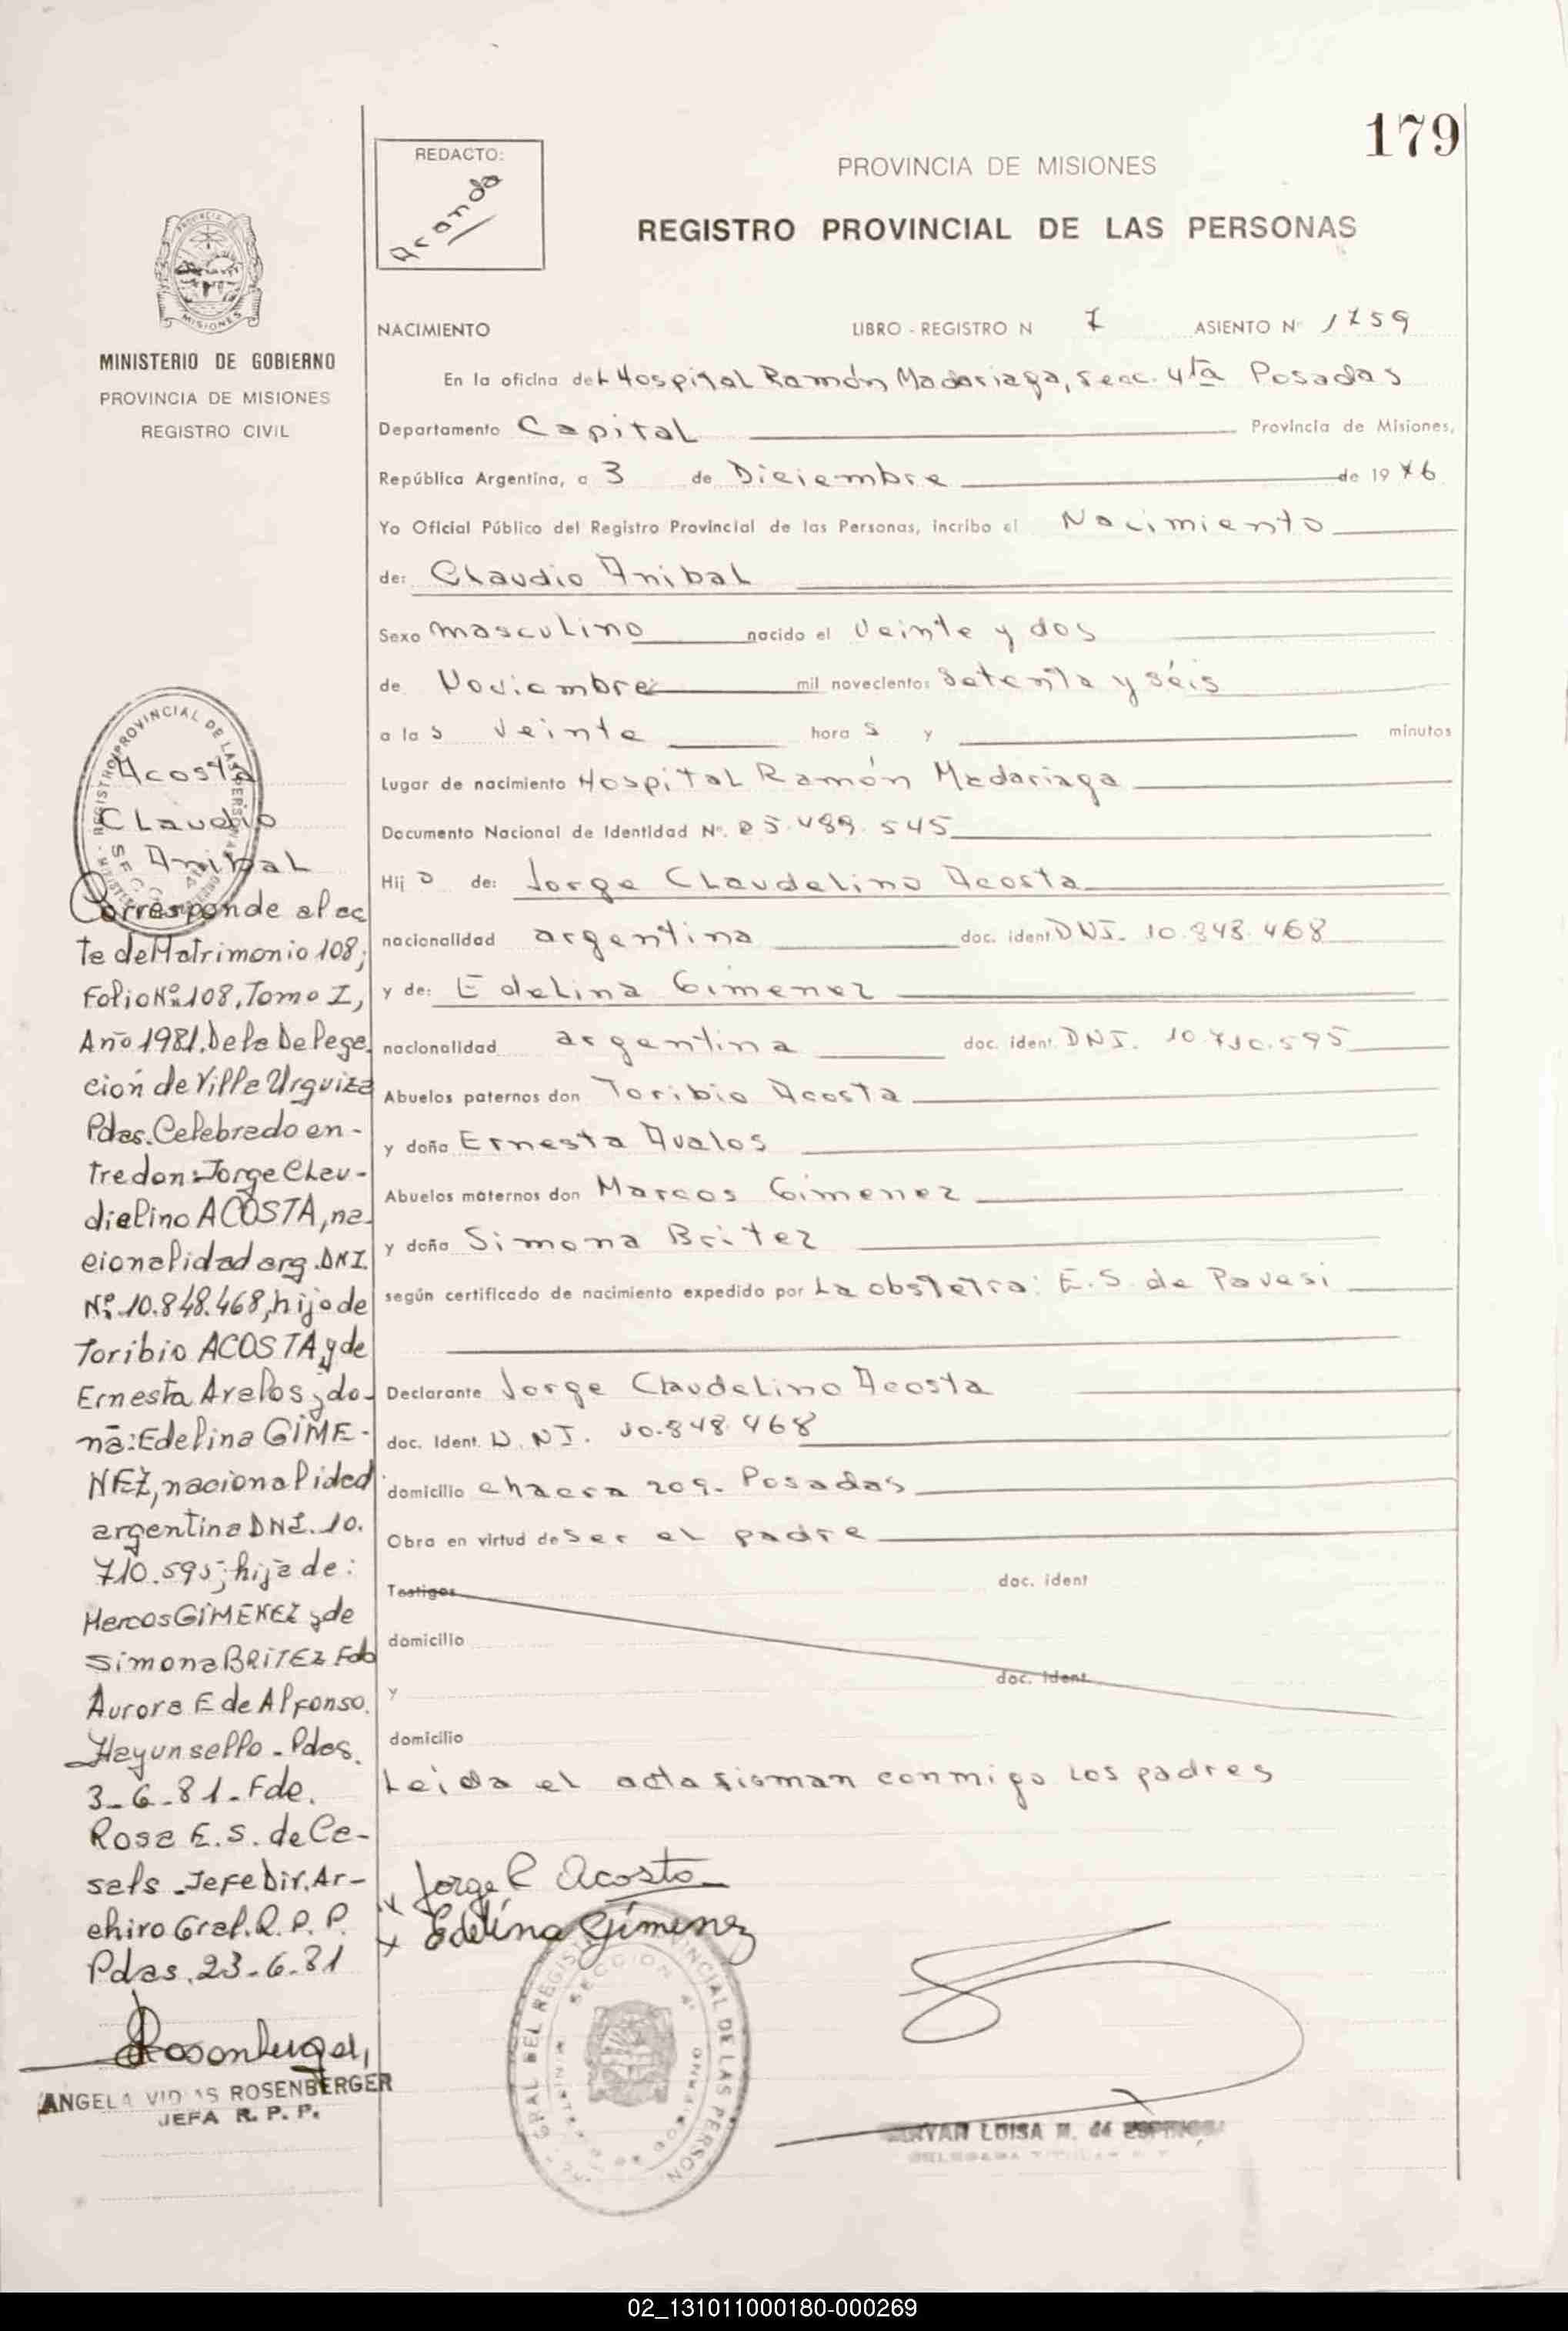 179
REDACTO:
Aranda
PROVINCIA DE MISIONES
REGISTRO PROVINCIAL DE LAS PERSONAS
MISIONES
MINISTERIO DE GOBIERNO
PROVINCIA DE MISIONES
REGISTRO CIVIL
NACIMIENTO LIBRO - REGISTRO N 7 ASIENTO Nº 1759
En la oficina del Hospital Ramón Madariaga, Secc. 4ta Posadas
Departamento Capital Provincia de Misiones,
República Argentina, a 3 de Diciembre de 1976
Yo Oficial Público del Registro Provincial de las Personas, incribo el Nacimiento
de: Claudio Anibal
Sexo masculino nacido el Veinte y dos
de Noviembre mil novecientos Setenta y séis
a las Veinte horas y minutos
Lugar de nacimiento Hospital Ramón Madariaga
Documento Nacional de Identidad Nº. 25.489.545
Hijo de: Jorge Claudelino Acosta
nacionalidad argentina doc. ident DNI. 10.848.468
y de: Edelina Gimenez
nacionalidad argentina doc. ident. DNI. 10.710.595
Abuelos paternos don Toribio Acosta
y doña Ernesta Avalos
Abuelos maternos don Marcos Gimenez
y doña Simona Britez
según certificado de nacimiento expedido por La obstetra: E.S. de Pavesi
Declarante Jorge Claudelino Acosta
doc. Ident. D.NI. 10.848.468
domicilio chacra 209. Posadas
Obra en virtud de Ser el padre
Testigos doc. ident
domicilio
y doc. ident
domicilio
Leida el acta firman conmigo los padres
Jorge C Acosta
x Edelina Gimenez
REGISTRO PROVINCIAL DE LAS PERSONAS
Acosta
Claudio
Anibal
Corresponde al ac
ta de Matrimonio 108,
Folio Nº 108, Tomo I,
Año 1981. De la Delega
ción de Villa Urquiza
Pdas. Celebrado en-
tre don: Jorge Clau-
dialino ACOSTA, na-
cionalidad arg. DNI.
Nº 10.848.468, hijo de
Toribio ACOSTA y de
Ernesta Avalos y do-
ña: Edelina GIME-
NEZ, nacionalidad
argentina DNI. 10.
710.595; hija de:
Marcos GIMENEZ y de
Simona BRITEZ Fdo
Aurora E de Alfonso.
Hay un sello - Pdas.
3-6-81. Fdo.
Rosa E. S. de Ca-
sals. Jefe Dir. Ar-
chivo Gral. R. P. P.
Pdas. 23-6-81
Rosenberger
ANGELA VIDAS ROSENBERGER
JEFA R. P. P.
GRAL DEL REGISTRO PROVINCIAL DE LAS PERSON
SECCION 4ª
LUISA M. de
02_131011000180-000269